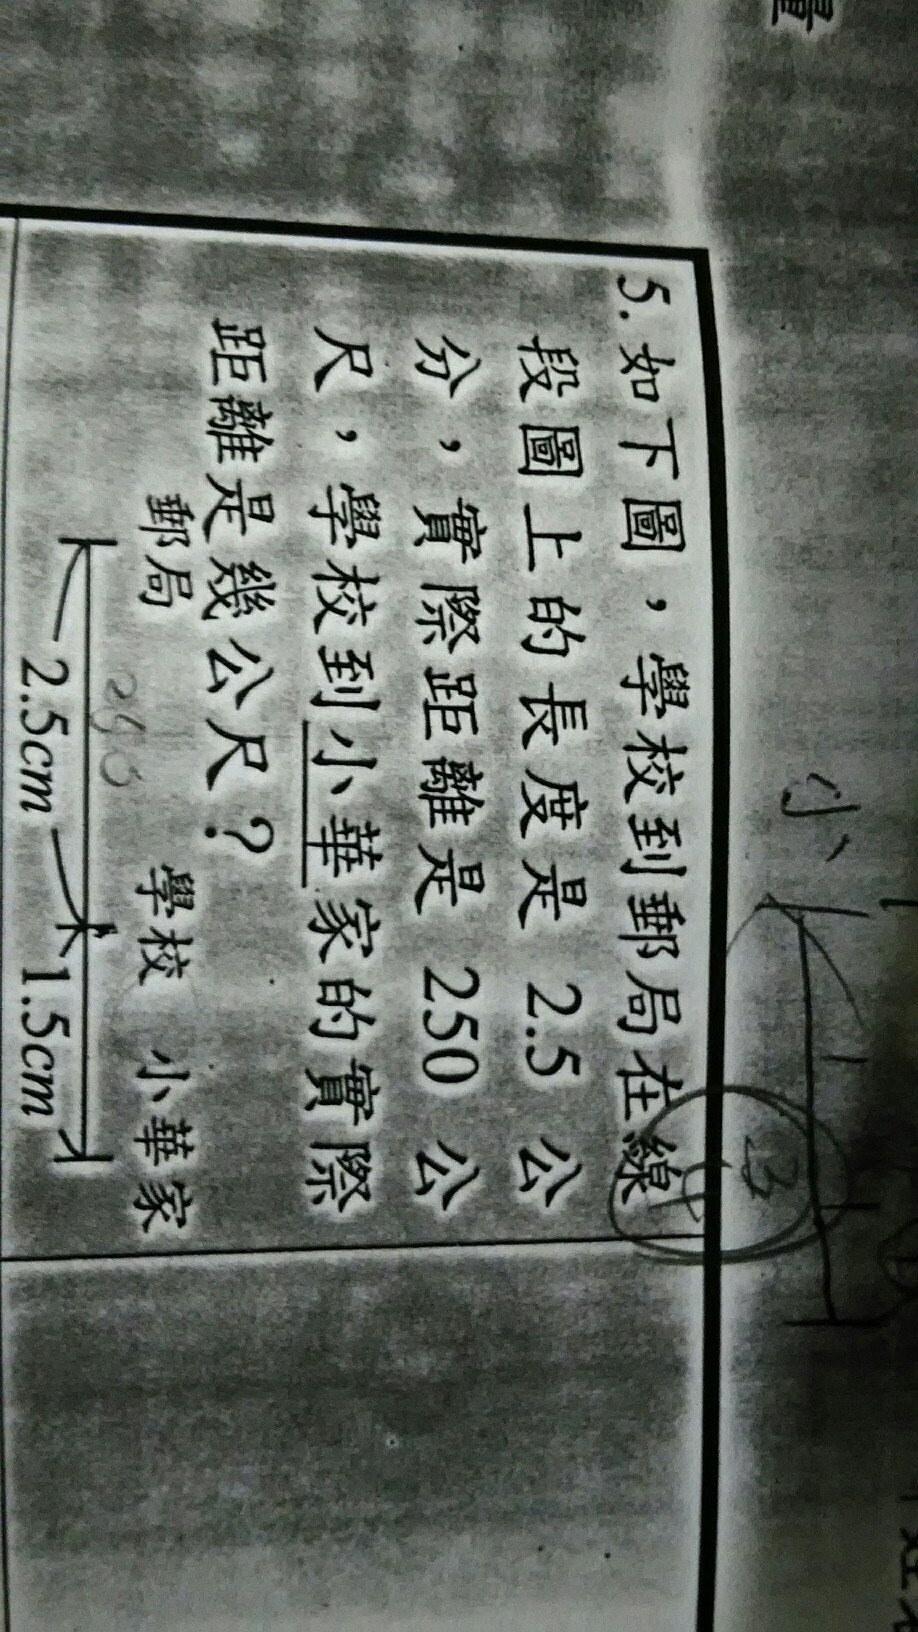 量
5. 如下圖，學校到郵局在線
段圖上的長度是 2.5 公
分，實際距離是 250 公
尺，學校到小華家的實際
距離是幾公尺？
郵局 學校 小華家
250
2.5cm 1.5cm
小
B